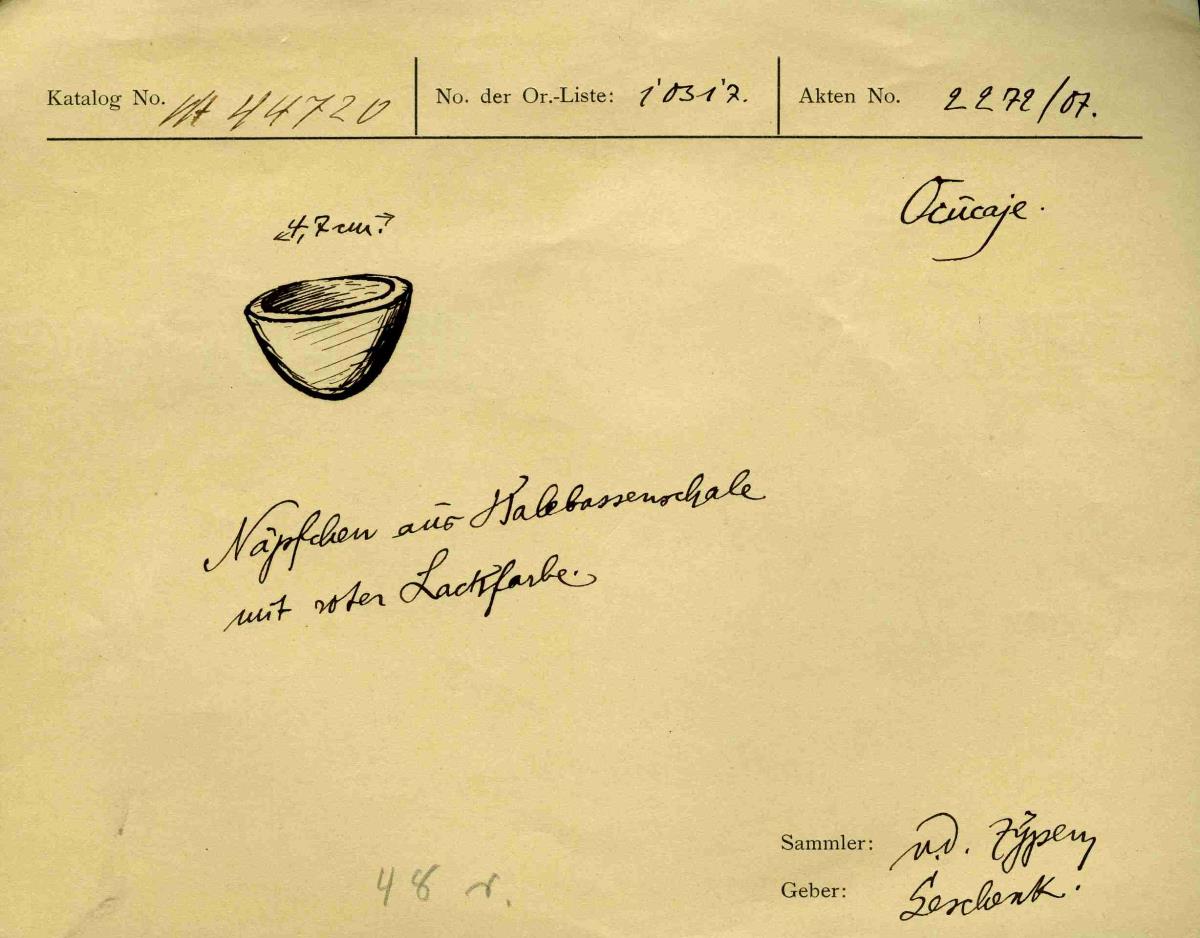 Katalog No. VA 44720
No. der Or.-Liste: 10317.
Akten No. 2272/07.
Ocūcaje.
4,7 cm.
Näpfchen aūs Kalebassenschale
mit roter Lackfarbe.
Sammler: v.d. Zÿpen
Geber: Geschenk.
48 r.